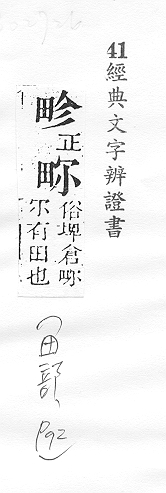 41
經典文字辨證書
畛正
畩俗埤倉畩
尒有田也
(田部)
P92